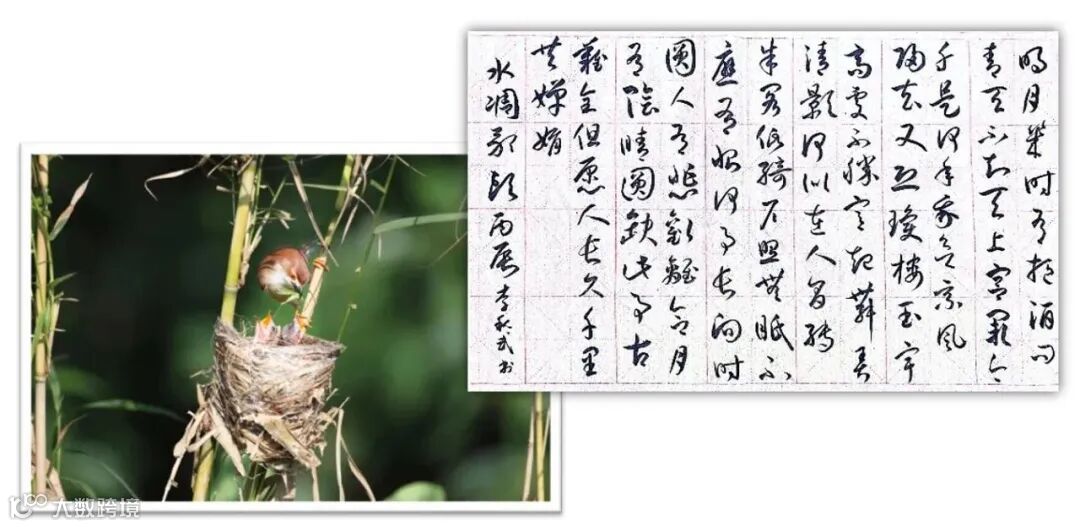 明月幾时有把酒问
青天不知天上宫闕今
夕是何年我欲乘风
归去又恐瓊楼玉宇
高處不勝寒起舞弄
清影何似在人间转
朱阁低绮户照無眠不
應有恨何事长向时
圆人有悲歡離合月
有陰晴圆缺此事古
難全但愿人长久千里
共嬋娟
水调歌頭 李秋武书
大数跨境